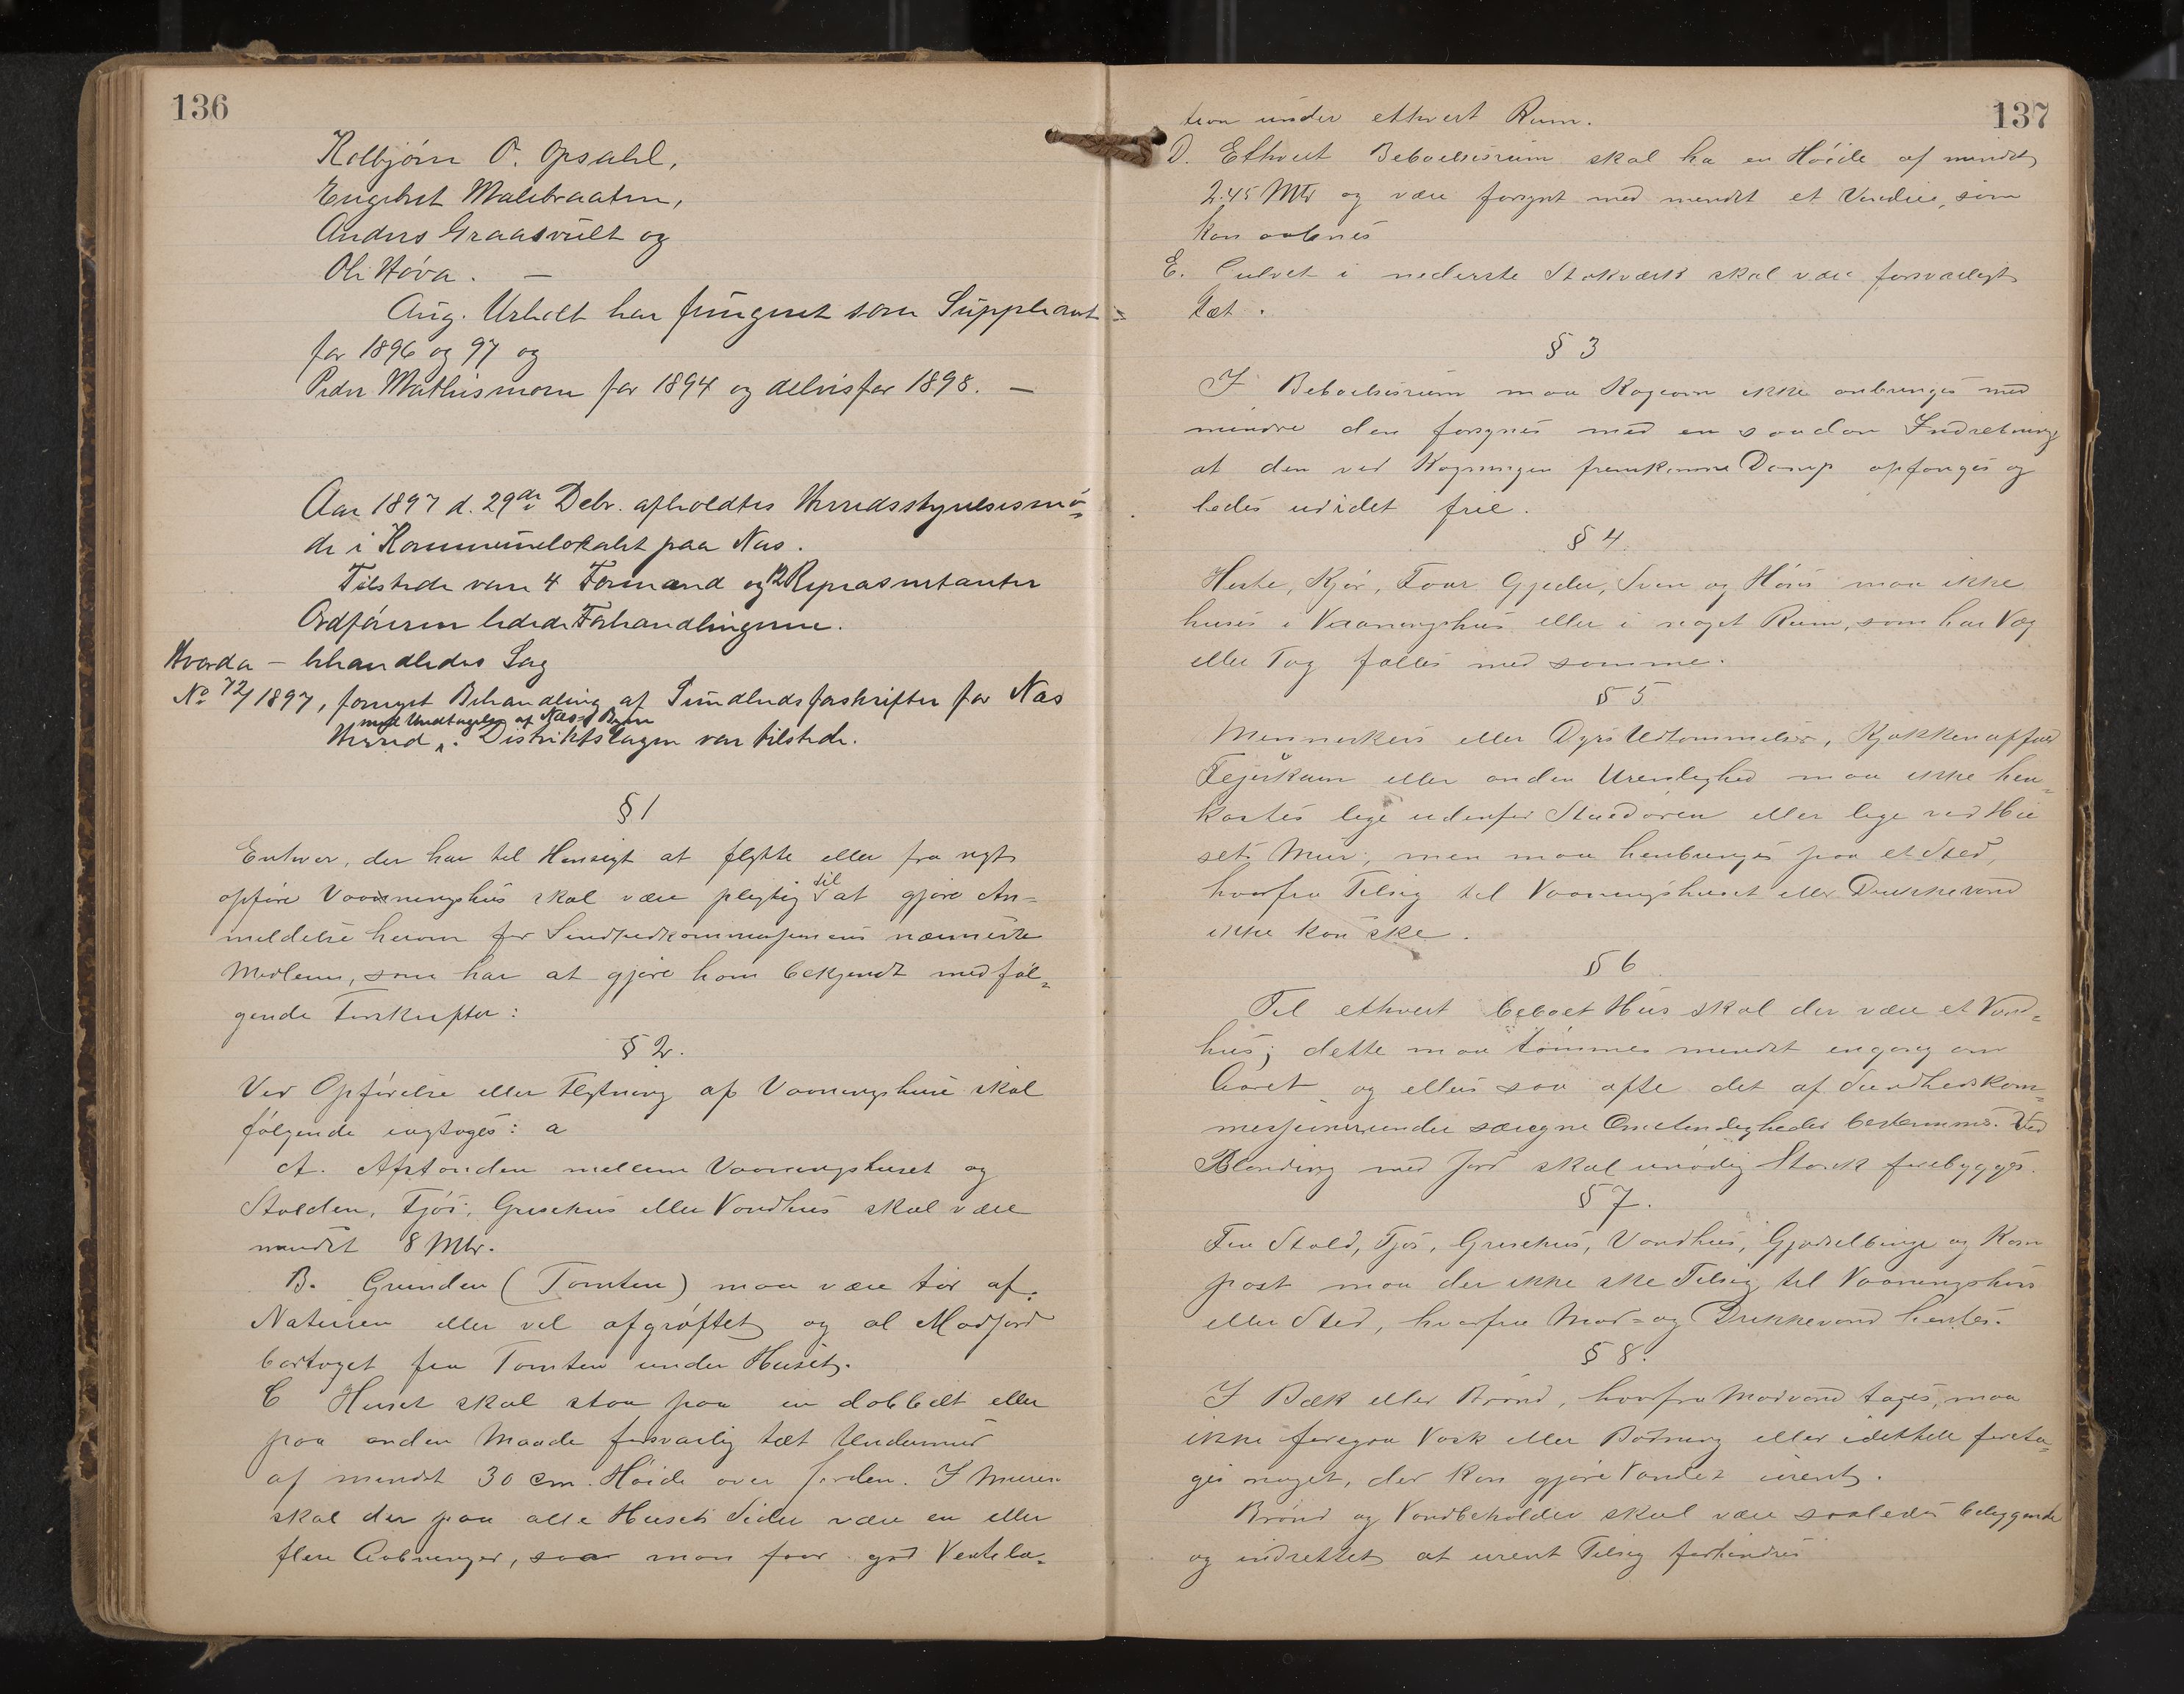 136
Kolbjørn O. Opsahl,
Engebret Malebraaten,
Anders Graasvelt og
Ole Høva. —
Aug. Urholt har fungeret som Suppleant
for 1896 og 97 og
Peder Mathismoen for 1894 og delvis for 1898. —
Aar 1897 d. 29de Debr. afholdtes Herredsstyrelsesmø-
de i Kommunelokalet paa Næs.
Tilstede vare 4 Formænd og 12 Repræsentanter
Ordføreren ledede Forhandlingerne.
Hvorda — behandledes Sag
No 72/1897, fornyet Behandling af Sundhedsforskrifter for Næs
med Undtagelse af Næs
Herred. Distriktslægen var tilstede.
§ 1
Enhver, der har til Hensigt at flytte eller fra nyt
opføre Vaaningshus skal være pligtig til at gjøre An-
meldelse herom for Sundhedkommisjonens nærmeste
Medlem, som har at gjøre ham bekjendt med føl-
gende Forskrifter:
§ 2.
Ved Opførelse eller Flytning af Vaaningshuse skal
følgende iagtages: a
A. Afstanden mellem Vaaningshuset og
Stalden, Fjøs, Grisehus eller Vandhus skal være
mindst 8 Mtr.
B. Grunden (Tomten) maa være tør af
Naturen eller vel afgrøftet og al Madjord
bortaget fra Tomten under Huset.
C Huset skal staa paa en dobbelt eller
paa anden Maade forsvarlig tæt Undermur
af mindst 30 cm. Høide over Jorden. I Muren
skal der paa alle Husets Sider være en eller
flere Aabninger, saa man faar god Ventela-
137
tion under ethvert Rum.
D. Ethvert Beboelsesrum skal ha en Høide af mindst
2.45 Mtr og være forsynt med mindst et Vindue, som
kan aabnes
E. Gulvet i nederste Stokværk skal være forsvarligt
tæt.
§ 3
I Beboelsesrum maa Kogeovn ikke anbringes med
mindre den forsynes med en saadan Indretning
at den ved Kogningen fremkomne Damp opfanges og
ledes ud i det frie.
§ 4.
Heste, Kjør, Faar Gjeder, Svin og Høns maa ikke
huses i Vaaningshus eller i noget Rum, som har Væg
eller Tag fælles med samme.
§ 5
Menneskers eller Dyrs Udtømmelser, Kjøkkenaffald
Fejeskarn eller anden Urenlighed maa ikke hen-
kastes lige udenfor Stuedøren eller lige ved Hu
sets Mur, men maa henbringes paa et Sted,
hvorfra Tilsig til Vaaningshuset eller Drikkevand
ikke kan ske.
§ 6
Til ethvert beboet Hus skal der være et Vand-
hus; dette maa tømmes mindst engang om
Aaret og ellers saa ofte det af Sundhedskom-
mesjonen under særegne Omstendigheder bestemmes. Ved
Blanding med Jord skal unødig Stank forebygges.
§ 7.
Fra Stald, Fjøs, Grisehus, Vandhus, Gjødselbinge og Kom
post maa der ikke ske Tilsig til Vaaningshus
eller Sted, hvorfra Mad- og Drikkevand hentes.
§ 8.
I Bæk eller Brønd, hvorfra Madvand tages, maa
ikke foregaa Vask eller Bøtning eller idethele foreta-
ges noget, der kan gjøre Vandet urent.
Brønd og Vandbeholder skal være saaledes beliggende
og indrettet at urent Tilsig forhindres